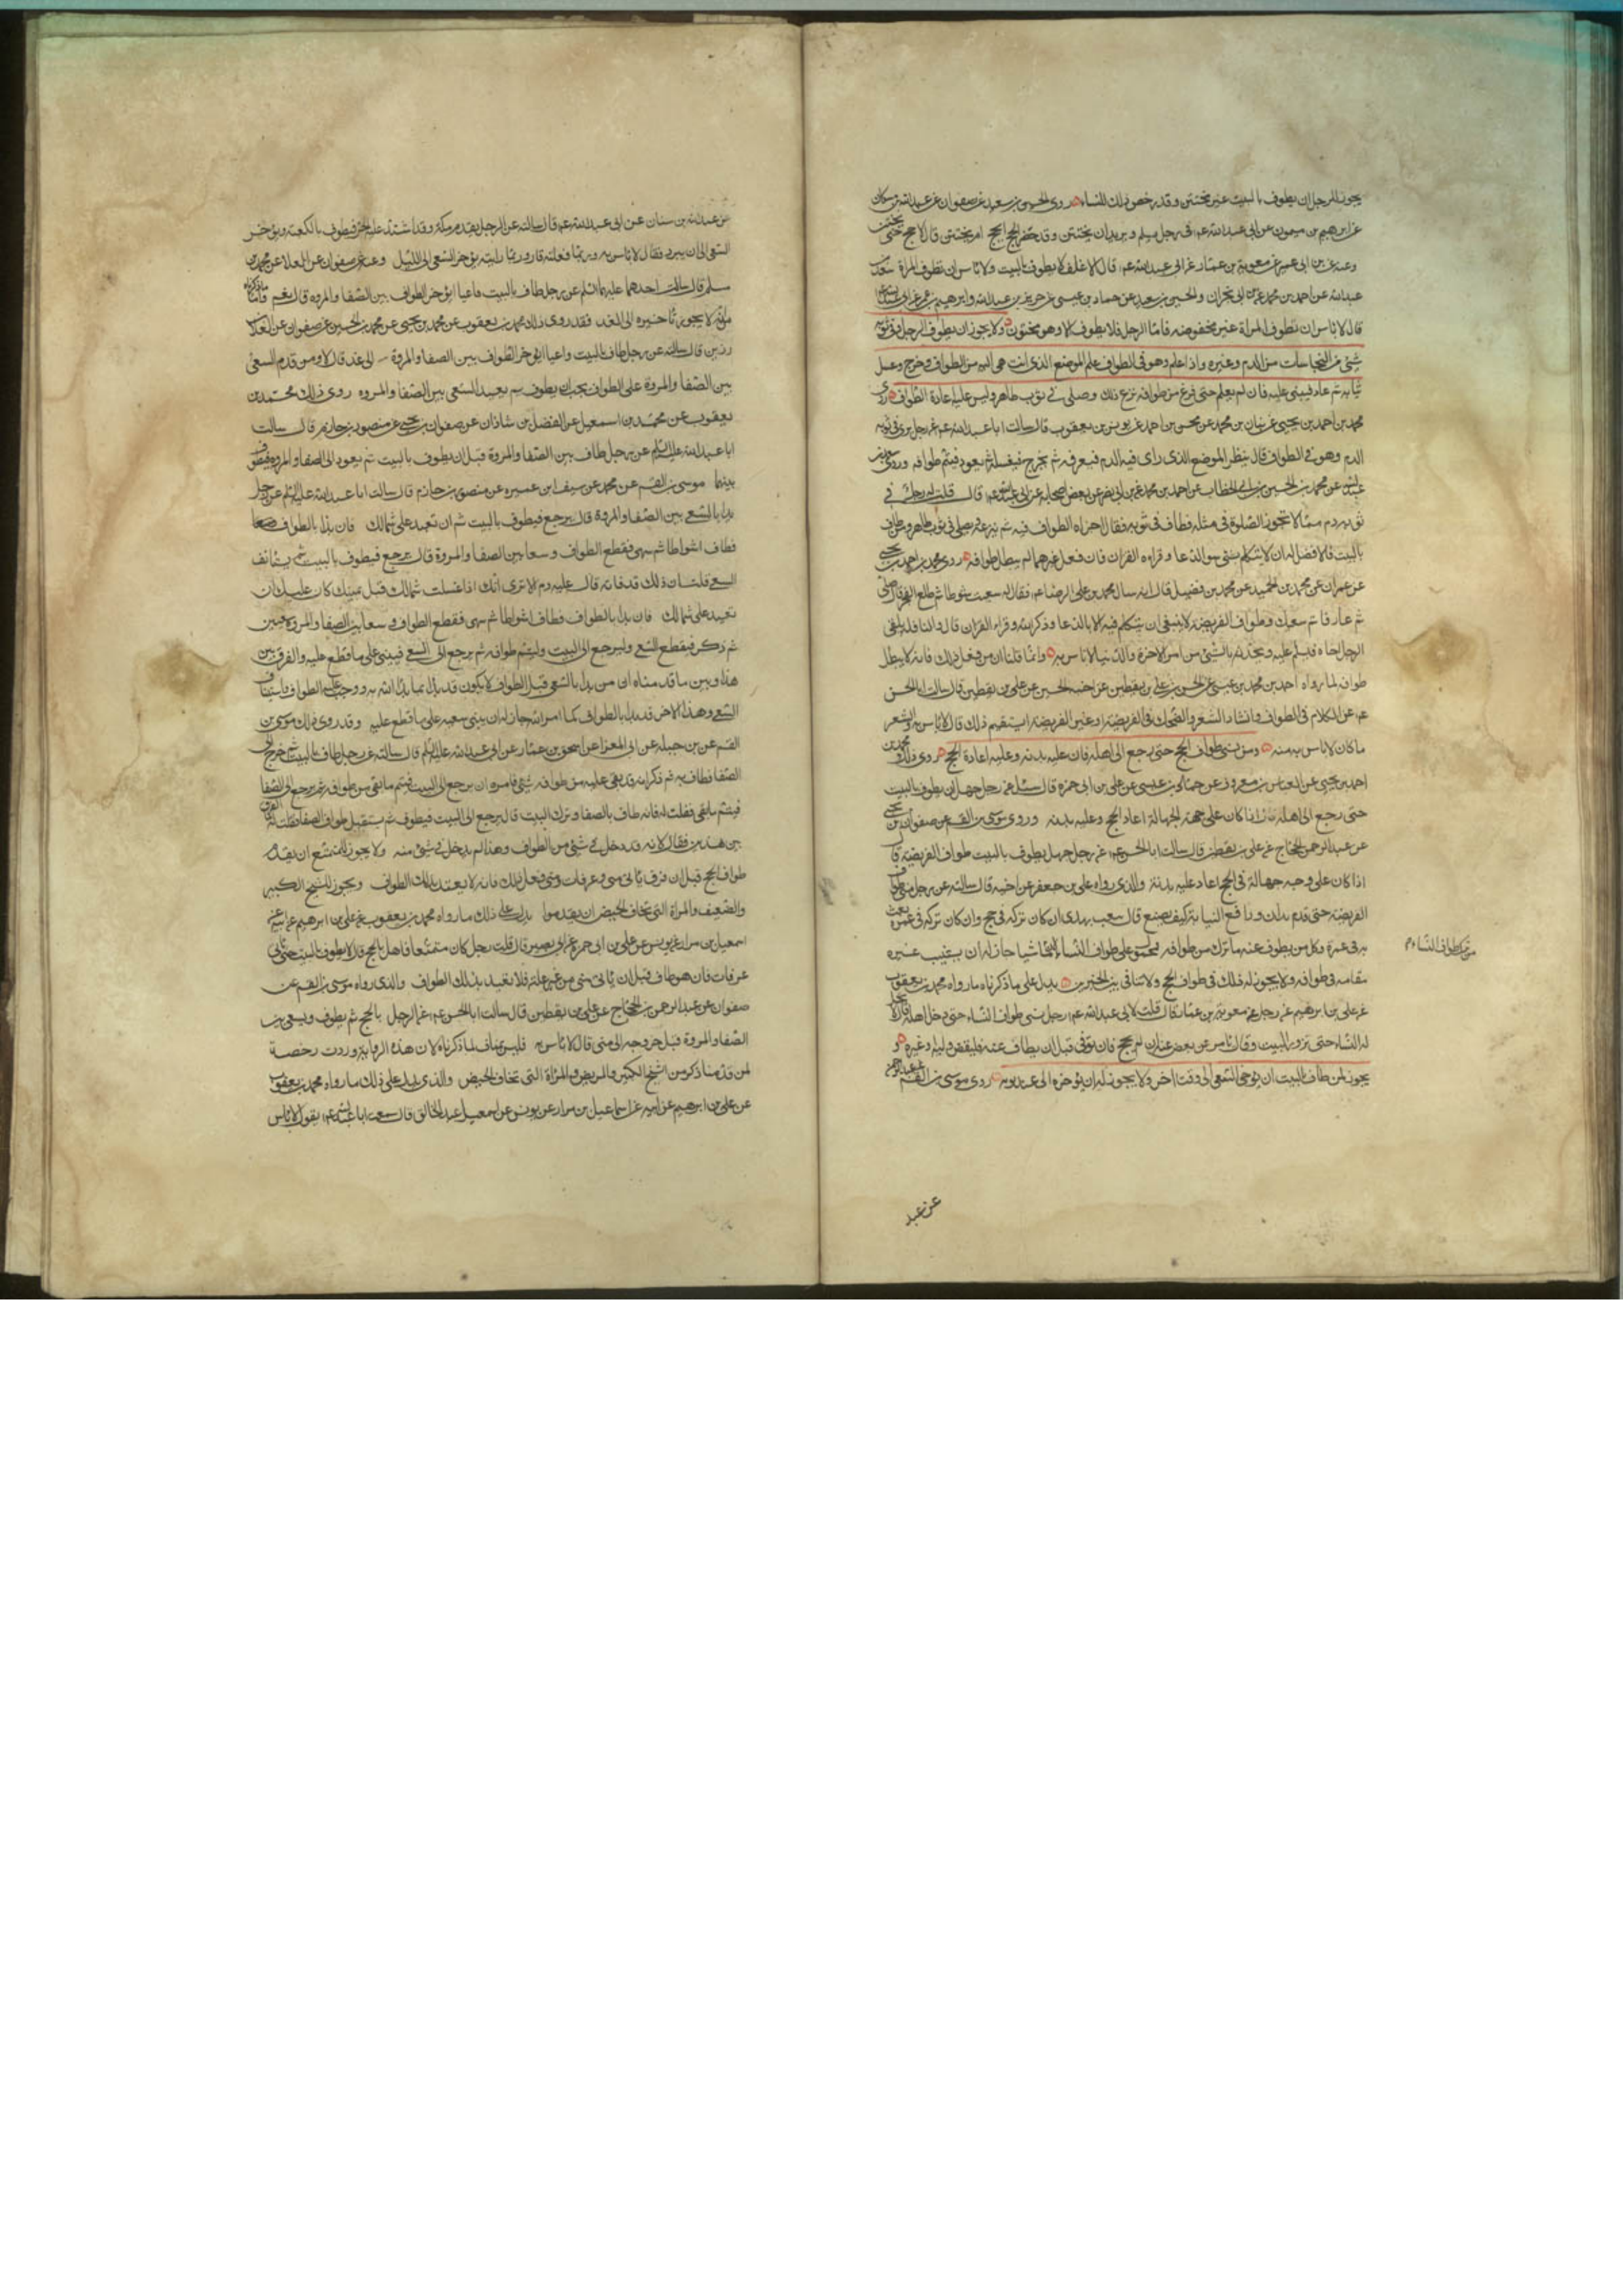 يجوز للرجل ان يطوف بالبيت غير مختتن وقد رخص ذلك للنساء روى الحسين بن سعيد عن صفوان عن عبدالله بن مسكان
عن ابرهيم بن ميمون عن ابى عبدالله عم فى رجل يسلم ويريد ان يختتن وقد حضر الحج ايحج ام يختتن قال لا يحج حتى يختتن
وعنه عن بن ابى عمير عن معوية بن عمار عن ابى عبدالله عم قال الاغلف لا يطوف بالبيت ولا باس ان تطوف المراة سعد بن
عبدالله عن احمد بن محمد عن بن ابى نجران والحسين بن سعيد عن حماد بن عيسى عن حريز بن عبدالله وابرهيم بن عمر عن ابى عبدالله
قال لا باس ان تطوف المراة غير مخفوضة فاما الرجل فلا يطوف الا وهو مختون ولا يجوز ان يطوف الرجل وفى ثوبه
شئ من النجاسات من الدم وغيره واذا علم وهو فى الطواف علم الموضع الذى انتهى اليه من الطواف وخرج وغسل
ثيابه ثم عاد فيبنى عليه فان لم يعلم حتى فرغ من طوافه نزع ذلك وصلى فى ثوب طاهر وليس عليه اعادة الطواف روى
محمد بن احمد بن يحيى عن بنان بن محمد عن محسن بن احمد عن يونس بن يعقوب قال سالت ابا عبدالله عم عن رجل يرى فى ثوبه
الدم وهو فى الطواف قال ينظر الموضع الذى راى فيه الدم فيعرفه ثم يخرج فيغسله ثم يعود فيتم طوافه وروى سعد بن
عبدالله عن محمد بن الحسين بن ابى الخطاب عن احمد بن محمد بن ابى نصر عن بعض اصحابه عن ابى عبدالله عم قال قلت له رجل فى
ثوبه دم مما لا تجوز الصلوة فى مثله فطاف فى ثوبه فقال اجزاه الطواف فيه ثم ينزعه ويصلى فى ثوب طاهر ومن طاف
بالبيت فالافضل له ان لا يتكلم بشئ سوى الدعا وقراءه القران فان فعل غيرهما لم يبطل طوافه روى محمد بن احمد بن يحيى
عن عمران عن محمد بن عبد الحميد عن محمد بن فضيل قال انه سال محمد بن على الرضا عم فقال له سعيت شوطا ثم طلع الفجر قال صل
ثم عد فاتم سعيك وطواف الفريضة لا ينبغى ان يتكلم فيه الا بالدعا وذكر الله وقراءه القران قال والنافلة يلقى
الرجل اخاه فيسلم عليه ويحدثه بالشئ من امر الاخرة والدنيا لا باس به وانما قلنا ان من فعل ذلك فانه لا يبطل
طوافه لما رواه احمد بن محمد بن عيسى عن الحسن بن على بن يقطين عن اخيه الحسين عن على بن يقطين قال سالت ابا الحسن
عم عن الكلام فى الطواف وانشاد الشعر والضحك فى الفريضة او غير الفريضة ايستقيم ذلك قال لا باس به والشعر
ما كان لا باس به منه ومن نسى طواف الحج حتى يرجع الى اهله فان عليه بدنة وعليه اعادة الحج روى ذلك محمد بن
احمد بن يحيى عن العباس بن معروف عن حماد بن عيسى عن على بن ابى حمزه قال سئل عن رجل جهل ان يطوف بالبيت
حتى رجع الى اهله قال اذا كان على جهة الجهالة اعاد الحج وعليه بدنه وروى موسى بن القسم عن صفوان بن يحيى
عن عبد الرحمن بن الحجاج عن على بن يقطين قال سالت ابا الحسن عم عن رجل جهل يطوف بالبيت طواف الفريضة قال
اذا كان على وجه جهالة فى الحج اعاد عليه بدنة والذى رواه على بن جعفر عن اخيه قال سالته عن رجل نسى طواف
الفريضة حتى قدم بلده وواقع النسا كيف يصنع قال يبعث بهدى ان كان تركه فى حج وان كان تركه فى عمرة بعث
به فى عمرة وكل من يطوف عنه ما ترك من طوافه محمول على طواف النساء جاز له ان يستنيب غيره
من ترك طواف النساء
مقامه فى طوافه ولا يجوز له ذلك فى طواف الحج ولا تنافى بين الخبرين يدل على ما ذكرناه ما رواه محمد بن يعقوب
عن على بن ابرهيم عن رجل عن معوية بن عمار قال قلت لابى عبدالله عم رجل نسى طواف النساء حتى دخل اهله قال لا تحل
له النساء حتى تزور البيت وقال يامر من يقضى عنه ان لم يحج فان توفى قبل ان يطاف عنه فليقض وليه او غيره و
يجوز لمن طاف بالبيت ان يؤخر السعى الى وقت اخر ولا يجوز له ان يؤخره الى غد يومه روى موسى بن القسم
عن عبد
عن عبدالله بن سنان عن ابى عبدالله عم قال سالته عن الرجل يقدم مكة وقد اشتد عليه الحر فيطوف بالكعبة ويؤخر
السعى الى ان يبرد فقال لا باس به وربما فعلته قال وربما رايته يؤخر السعى الى الليل وعنه عن صفوان عن العلا عن محمد بن
مسلم قال سالت احدهما عليهما السلم عن رجل طاف بالبيت فاعيا ايؤخر الطواف بين الصفا والمروه قال نعم
لا يجوز تاخيره الى الغد فقد روى ذلك محمد بن يعقوب عن محمد بن يحيى عن محمد بن الحسين عن صفوان عن العلا بن
رزين قال سالته عن رجل طاف بالبيت واعيا ايؤخر الطواف بين الصفا والمروة الى غد قال لا ومن قدم السعى
بين الصفا والمروة على الطواف يجب ان يطوف ثم يعيد السعى بين الصفا والمروه روى ذلك محمد بن
يعقوب عن محمد بن اسمعيل عن الفضل بن شاذان عن صفوان بن يحيى عن منصور بن حازم قال سالت
ابا عبدالله عليه السلم عن رجل طاف بين الصفا والمروة قبل ان يطوف بالبيت ثم يعود الى الصفا والمروه فيطوف
بينهما موسى بن القسم عن محمد عن سيف ابن عميره عن منصور بن حازم قال سالت ابا عبدالله عليه السلم عن رجل
بدا بالسعى بين الصفا والمروة قال يرجع فيطوف بالبيت ثم ان تعيد على شمالك فان بدا بالطواف
فطاف اشواطا ثم سهى فقطع الطواف وسعا بين الصفا والمروة قال يرجع فيطوف بالبيت ثم يستانف
السعى قلت ان ذلك قد فاته قال عليه دم الا ترى انك اذا غسلت شمالك قبل يمينك كان عليك ان
تعيد على شمالك فان بدا بالطواف فطاف اشواطا ثم سهى فقطع الطواف وسعا بين الصفا والمروة
ثم ذكر فيقطع السعى وليرجع الى البيت وليتم طوافه ثم يرجع الى السعى فيبنى على ما قطع عليه والفرق بين
هذا وبين ما قدمناه ان من بدا بالسعى قبل الطواف لا يكون قد بدا بما بدا الله به ووجب عليه الطواف واستيناف
السعى وهذا الاخر قد بدا بالطواف كما امر الله جاز له ان يبنى سعيه على ما قطع عليه وقد روى ذلك موسى بن
القسم عن بن جبله عن ابى المعزا عن اسحق بن عمار عن ابى عبدالله عليه السلم قال سالته عن رجل طاف بالبيت ثم خرج الى
الصفا فطاف به ثم ذكر انه قد بقى عليه من طوافه شئ فامره ان يرجع الى البيت فيتم ما بقى من طوافه ثم يرجع الى الصفا
فيتم ما بقى فقلت له فانه طاف بالصفا وترك البيت قال يرجع الى البيت فيطوف ثم يستقبل طواف الصفا فقلت له ما الفرق
بين هذين فقال لانه قد دخل فى شئ من الطواف وهذا لم يدخل فى شئ منه ولا يجوز للمتمتع ان يقدم
طواف الحج قبل ان ياتى منى وعرفات ومتى فعل ذلك فانه لا يعتد بذلك الطواف ويجوز للشيخ الكبير
والضعيف والمراة التى تخاف الحيض ان يقدموا يدل على ذلك ما رواه محمد بن يعقوب عن على بن ابرهيم عن ابيه عن
اسمعيل بن مرار عن يونس عن على بن ابى حمزه عن ابى بصير قال قلت رجل كان متمتعا فاهل بالحج قال لا يطوف بالبيت حتى ياتى
عرفات فان هو طاف قبل ان ياتى منى من غير علة فلا يعتد بذلك الطواف والذى رواه موسى بن القسم عن
صفوان عن عبد الرحمن بن الحجاج عن على بن يقطين قال سالت ابا الحسن عم عن الرجل بالحج ثم يطوف ويسعى بين
الصفا والمروة قبل خروجه الى منى قال لا باس به فليس بمناف لما ذكرناه لان هذه الرواية وردت رخصة
لمن قدمنا ذكره من الشيخ الكبير والمريض والمراة التى تخاف الحيض والذى يدل على ذلك ما رواه محمد بن يعقوب
عن على بن ابرهيم عن ابيه عن اسماعيل بن مرار عن يونس عن اسمعيل بن عبد الخالق قال سمعت ابا عبدالله عم يقول لا باس